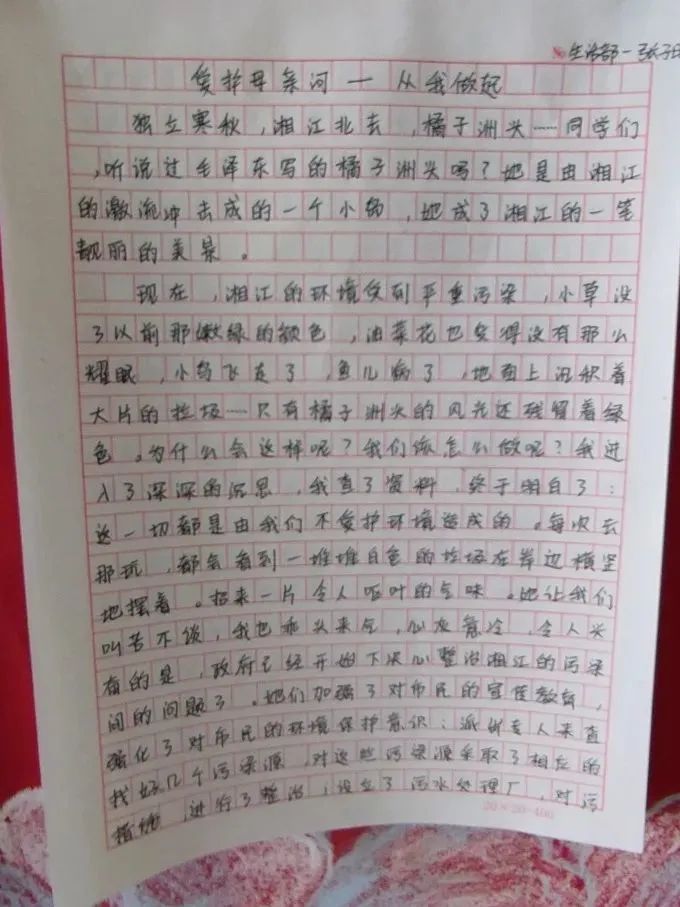 生活部一张子
爱护母亲河一从我做起
独立寒秋,湘江北去,橘子洲头……同学们
,听说过毛泽东写的橘子洲头吗?她是由湘江
的激流冲击成的一个小岛,她成了湘江的一笔
靓丽的美景。
现在,湘江的环境受到严重污染,小草没
了以前那嫩绿的颜色,油菜花也变得没有那么
耀眼,小鸟飞走了,鱼儿病了,地面上沉积着
大片的垃圾……只有橘子洲头的风光还残留着绿
色。为什么会这样呢?我们该怎么做呢?我进
入了深深的沉思,我查了资料,终于明白了:
这一切都是由我们不爱护环境造成的。每次去
那玩,都会看到一堆堆白色的垃圾在岸边横竖
地摆着。招来一片令人呕吐的气味。她让我们
叫苦不谈,我也垂头来气,心灰意冷,令人兴
有的是,政府已经开始下决心整治湘江的污染
问的问题了。她们加强了对市民的宣传教育,
强化了对市民的环境保护意识;派出专人来查
找好几个污染源,对这些污染源采取了相应的
措施,进行了整治;设立了污水处理厂,对污
20×20=400